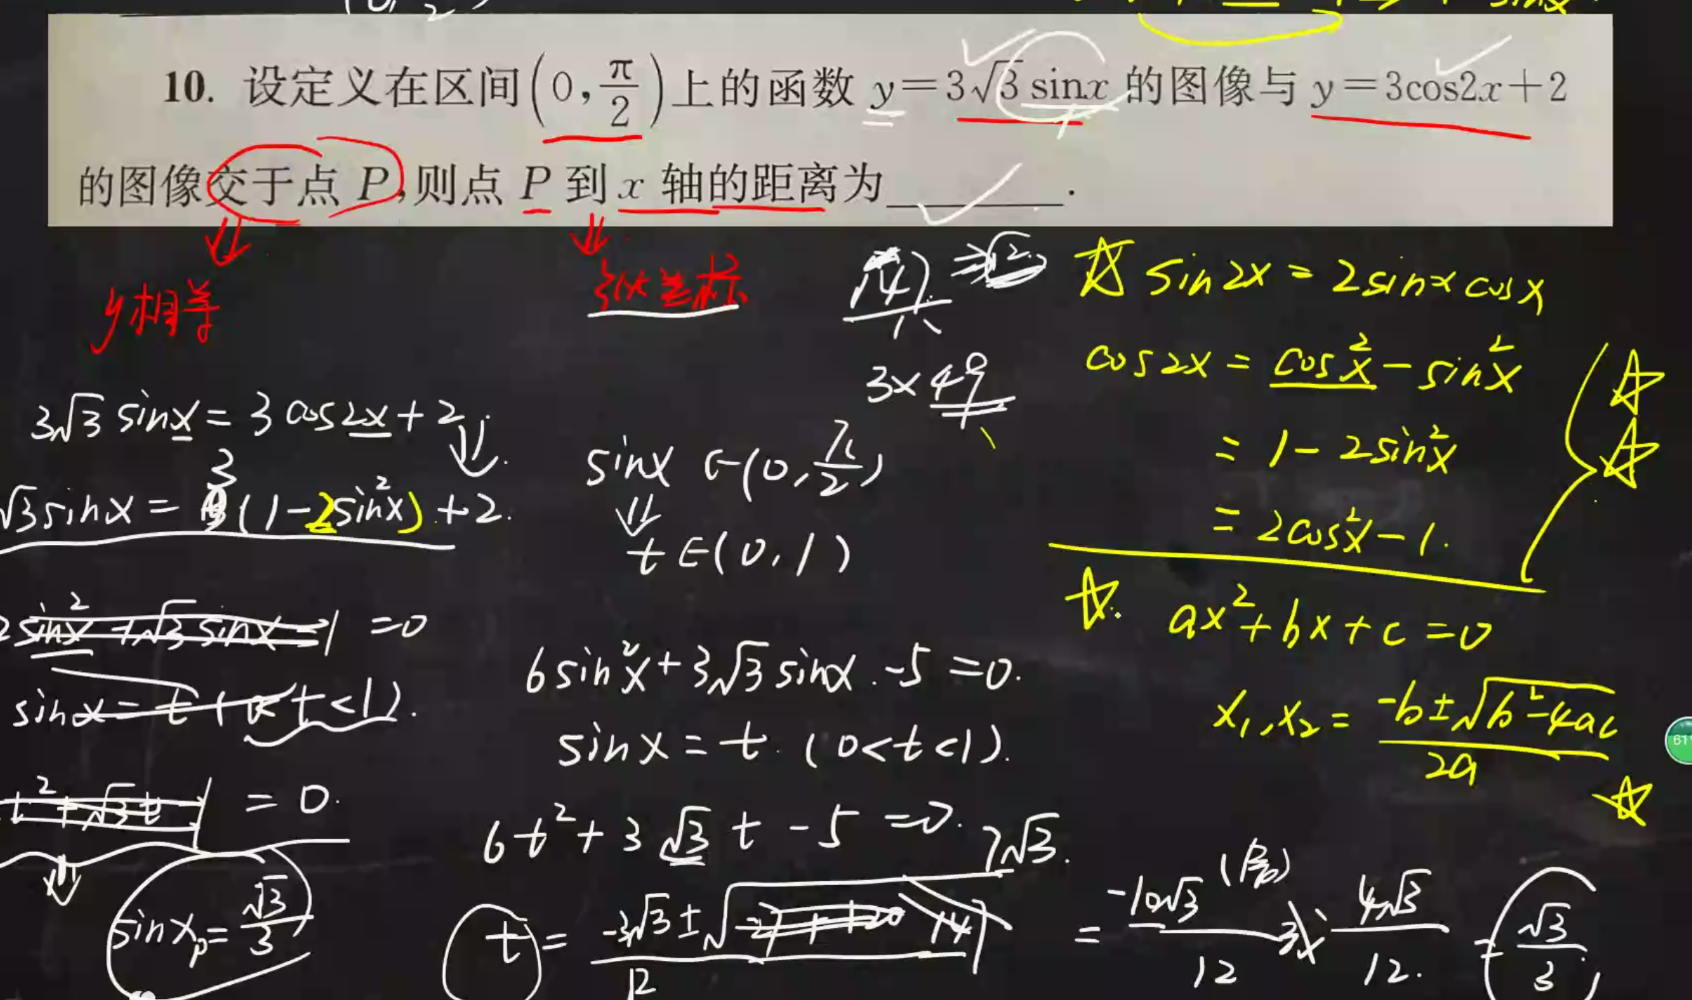 10. 设定义在区间(0,π/2)上的函数 y=3√3 sinx 的图像与 y=3cos2x+2
的图像交于点 P,则点 P 到 x 轴的距离为______.
y相等
纵坐标
147
3×49
3√3 sinx = 3cos2x+2
√3sinx = 3(1-2sin²x)+2.
=0
sinx = t (0<t<1).
= 0.
sinxₚ = √3/3
sinx ∈(0,π/2)
t∈(0,1)
6sin²x+3√3 sinx-5=0.
sinx = t (0<t<1).
6t²+3√3 t-5=0.
7√3.
t = (-3√3±√147)/12
= -10√3/12 (舍) 或 4√3/12 = √3/3
☆ sin2x = 2sinx cosx
cos2x = cos²x - sin²x
= 1-2sin²x
= 2cos²x-1.
☆. ax²+bx+c=0
x₁,x₂ = (-b±√(b²-4ac))/2a
61